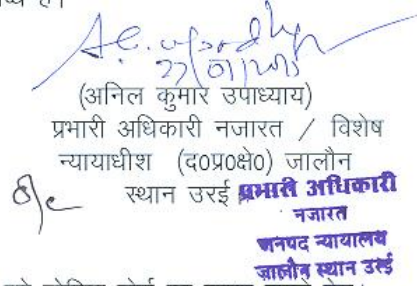 A.C. Upadhyay
27/01/2015
(अनिल कुमार उपाध्याय)
प्रभारी अधिकारी नजारत / विशेष
न्यायाधीश (द०प्र०क्षे०) जालौन
स्थान उरई
प्रभारी अधिकारी
नजारत
जनपद न्यायालय
जालौन स्थान उरई